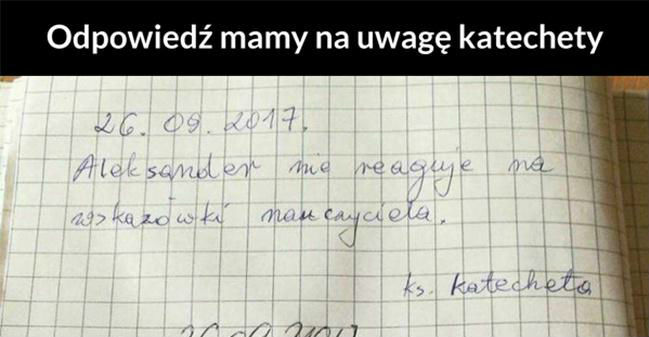 Odpowiedź mamy na uwagę katechety
26. 09. 2017.
Aleksander nie reaguje na
wskazówki nauczyciela.
ks. katecheta